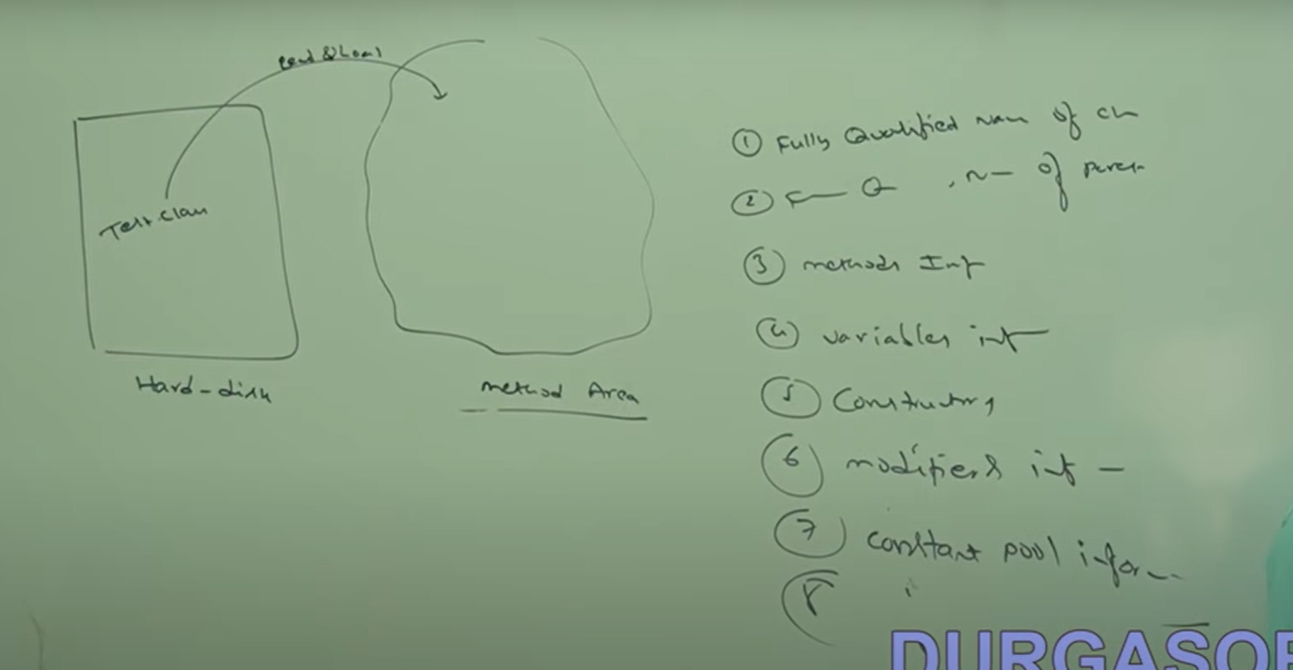 Read & Load
Test.class
Hard-disk
method Area
① Fully Qualified name of
② of
③ methods Inf
④ variables inf
⑤ Constructors
⑥ modifiers inf —
⑦ constant pool infor
⑧
DURGASOF